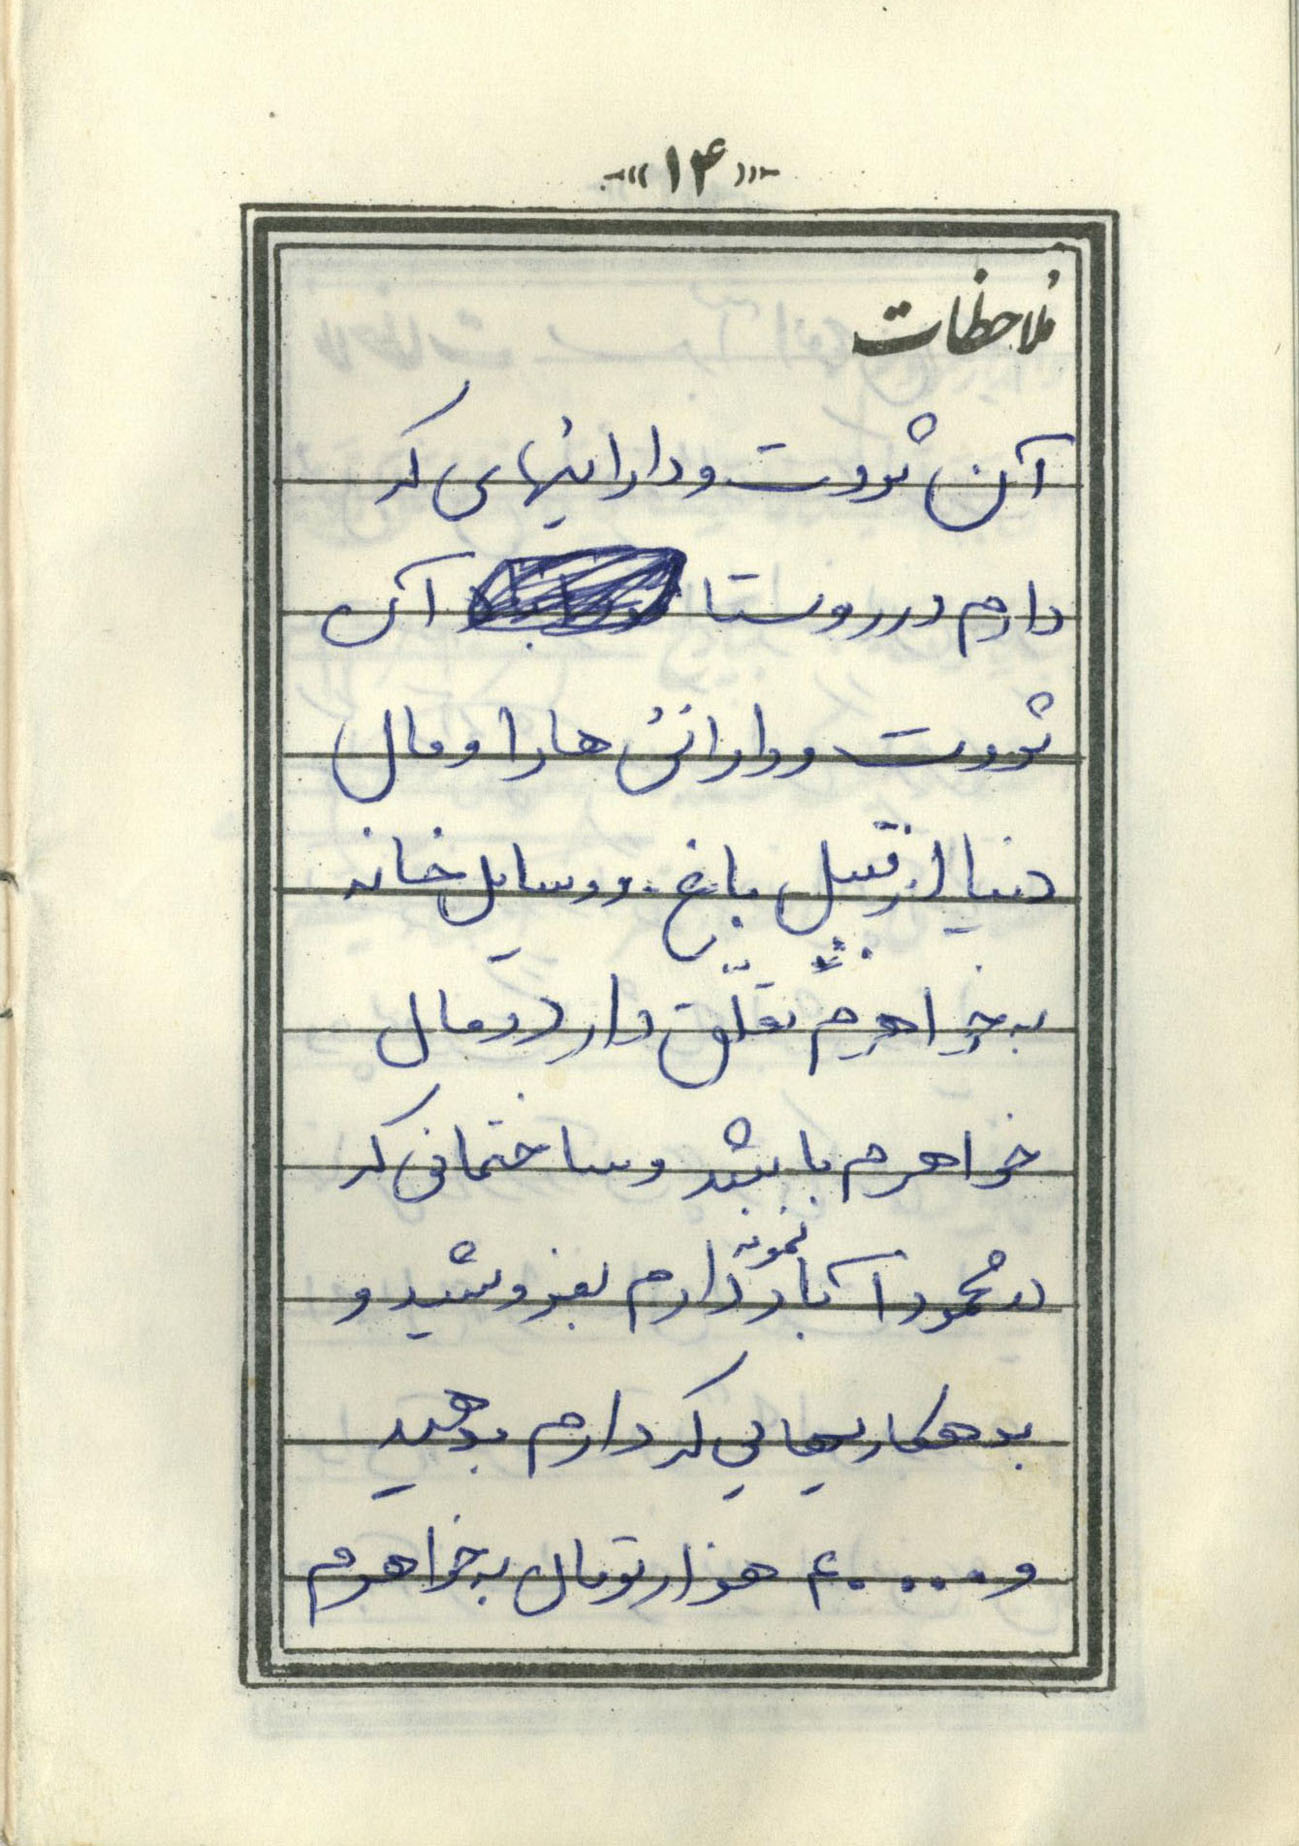 -«۱۴»-
ملاحظات
آن ثروت و دارائیهای که
دارم در روستا آن
ثروت و دارائی ها را و مال
دنیا از قبیل باغ و وسایل خانه
به خواهرم تعلّق دارد و مال
خواهرم بابشد و ساختمانی که
در محمود آباد نمونه دارم بفروشید و
بدهکاریهایی که دارم بدهید
و ۴۰۰۰۰ هزار تومان به خواهرم